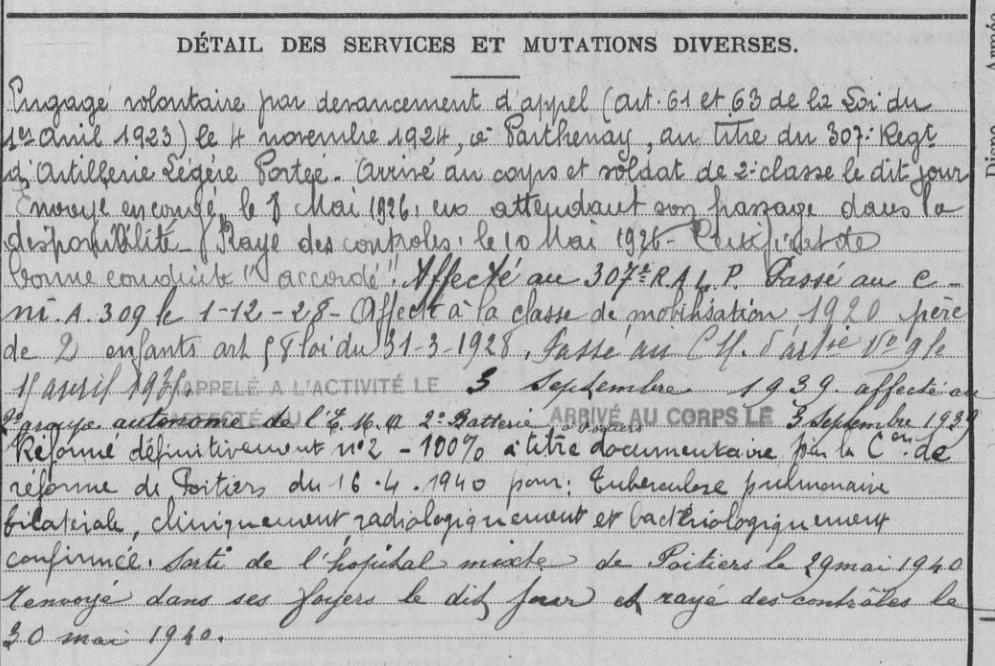 DÉTAIL DES SERVICES ET MUTATIONS DIVERSES.
Engagé volontaire par devancement d'appel (art. 61 et 63 de la Loi du
1er Avril 1923) le 4 novembre 1924, à Parthenay, au titre du 307e Regt
d'Artillerie Légère Portée. Arrivé au corps et soldat de 2e classe le dit jour
Envoyé en congé, le 8 Mai 1926, en attendant son passage dans la
disponibilité. Rayé des controles, le 10 Mai 1926 - Certificat de
bonne conduite "accordé". Affecté au 307e R.A.L.P. Passé au C -
m. A. 309 le 1-12-28 - Affecté à la classe de mobilisation 1920 père
de 2 enfants art 58 loi du 31-3-1928, Passé au C M. d'artie No 9 le
avril APPELÉ A L'ACTIVITÉ LE 3 Septembre 1939 affecté au
2e groupe autonome de l'E.M.A 2e Batterie à Poitiers ARRIVÉ AU CORPS LE 3 Septembre 1939
Réformé définitivement n°2 - 100% à titre documentaire par la Con de
réforme de Poitiers du 16.4.1940 pour: Tuberculose pulmonaire
bilatérale, cliniquement radiologiquement et bactériologiquement
confirmée. Sorti de l'hopital mixte de Poitiers le 29 mai 1940
Renvoyé dans ses foyers le dit jour et rayé des contrôles le
30 mai 1940.
Dispo
Armée